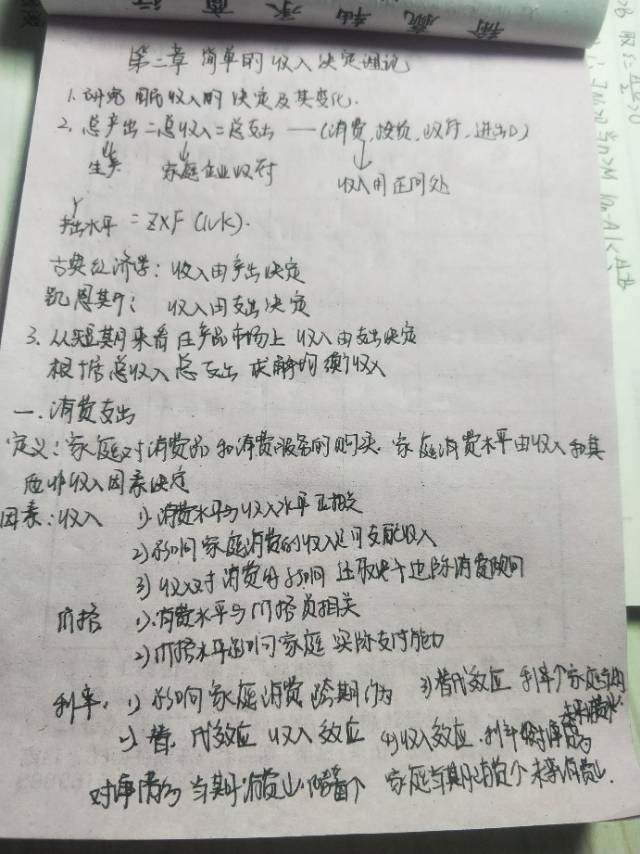 第二章 简单的收入决定理论
1. 研究国民收入的决定及其变化.
2. 总产出=总收入=总支出——(消费,投资,政府,进出口)
生产 家庭企业政府 收入用在何处
Y
产出水平 = Z×F(
古典经济学: 收入由产出决定
凯恩斯: 收入由支出决定
3. 从短期来看在产品市场上 收入由支出决定
根据总收入总支出 求解均衡收入
一. 消费支出
定义: 家庭对消费品和消费服务的购买. 家庭消费水平由收入和其
他非收入因素决定
因素: 收入 1) 消费水平与收入水平正相关
2) 影响家庭消费的收入是可支配收入
3) 收入对消费的影响 还取决于边际消费倾向
价格 1) 消费水平与价格负相关
2) 价格水平影响家庭实际支付能力
利率. 1) 影响家庭消费跨期行为 3) 替代效应 利率个家庭
2) 替代效应 收入效应 4) 收入效应.
当期消费 储蓄个 家庭当期消费个 未来消费